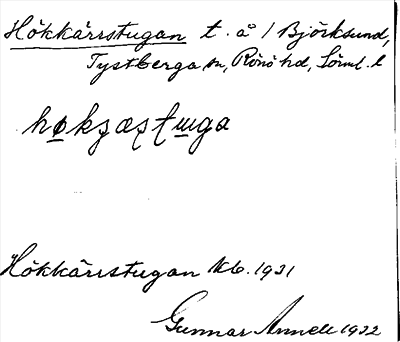 Hökkärrstugan t. å / Björksund,
Tystberga sn, Rönö hd, Sörml. l
Hökkärrstugan Kb. 1931
Gunnar Annell 1932